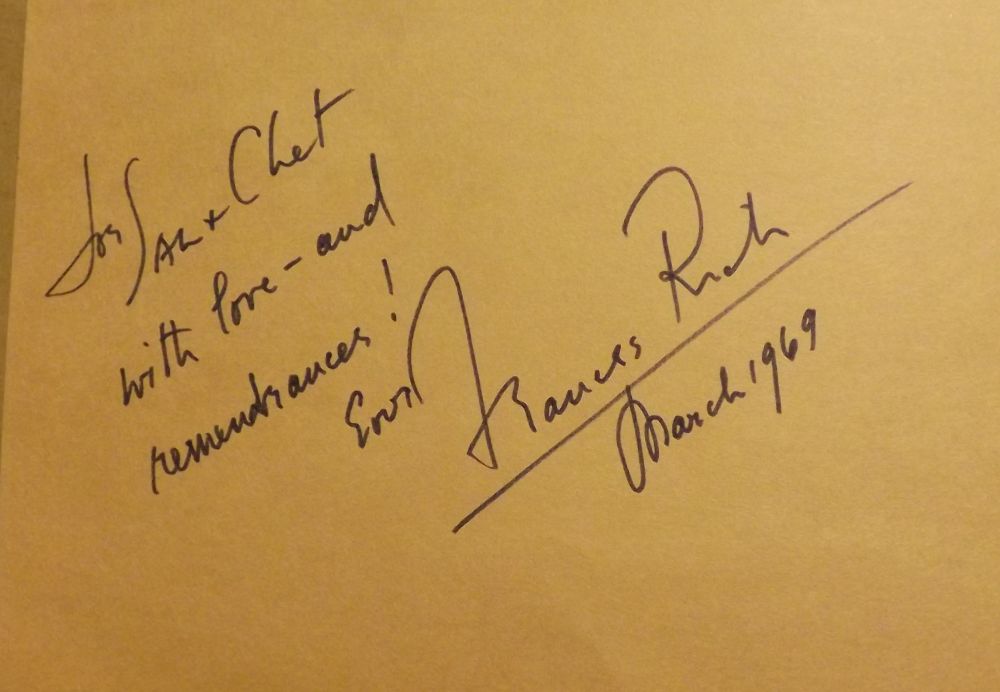 for Sal + Chet
with love - and
remembrances!
Ever
Frances Rich
March 1969